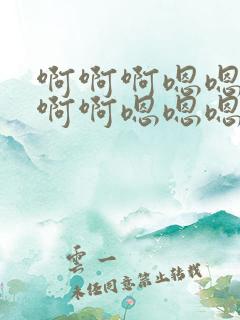 啊啊啊嗯嗯
啊啊嗯嗯嗯
雲一
未经同意禁止转载